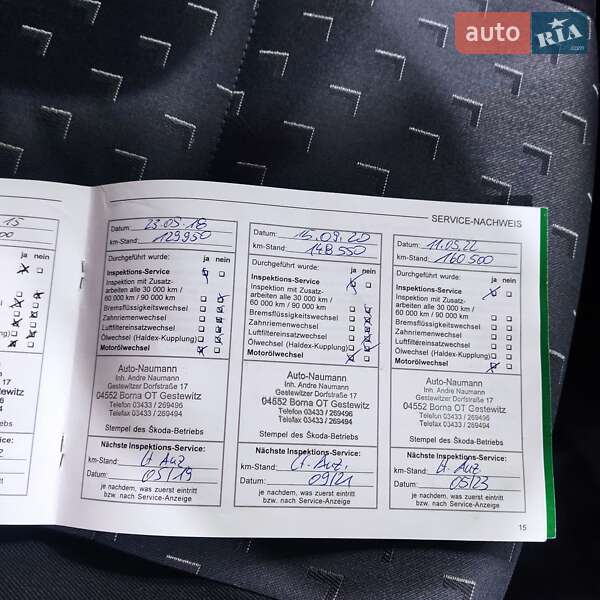 auto RIA.com
SERVICE-NACHWEIS
15
00
ja nein
Datum: 23.05.18
km-Stand: 129950
Durchgeführt wurde:
ja nein
Inspektions-Service
Inspektion mit Zusatz-
arbeiten alle 30 000 km /
60 000 km / 90 000 km
Bremsflüssigkeitswechsel
Zahnriemenwechsel
Luftfiltereinsatzwechsel
Ölwechsel (Haldex-Kupplung)
Motorölwechsel
Auto-Naumann
Inh. Andre Naumann
Gestewitzer Dorfstraße 17
04552 Borna OT Gestewitz
Telefon 03433 / 269496
Telefax 03433 / 269494
Stempel des Škoda-Betriebs
Nächste Inspektions-Service:
km-Stand: lt. Anz.
Datum: 05/19
je nachdem, was zuerst eintritt
bzw. nach Service-Anzeige
Datum: 15.09.20
km-Stand: 148 550
Durchgeführt wurde:
ja nein
Inspektions-Service
Inspektion mit Zusatz-
arbeiten alle 30 000 km /
60 000 km / 90 000 km
Bremsflüssigkeitswechsel
Zahnriemenwechsel
Luftfiltereinsatzwechsel
Ölwechsel (Haldex-Kupplung)
Motorölwechsel
Auto-Naumann
Inh. Andre Naumann
Gestewitzer Dorfstraße 17
04552 Borna OT Gestewitz
Telefon 03433 / 269496
Telefax 03433 / 269494
Stempel des Škoda-Betriebs
Nächste Inspektions-Service:
km-Stand: lt. Anz.
Datum: 09/21
je nachdem, was zuerst eintritt
bzw. nach Service-Anzeige
Datum: 11.05.22
km-Stand: 160 500
Durchgeführt wurde:
ja nein
Inspektions-Service
Inspektion mit Zusatz-
arbeiten alle 30 000 km /
60 000 km / 90 000 km
Bremsflüssigkeitswechsel
Zahnriemenwechsel
Luftfiltereinsatzwechsel
Ölwechsel (Haldex-Kupplung)
Motorölwechsel
Auto-Naumann
Inh. Andre Naumann
Gestewitzer Dorfstraße 17
04552 Borna OT Gestewitz
Telefon 03433 / 269496
Telefax 03433 / 269494
Stempel des Škoda-Betriebs
Nächste Inspektions-Service:
km-Stand: lt. Anz.
Datum: 05/23
je nachdem, was zuerst eintritt
bzw. nach Service-Anzeige
15